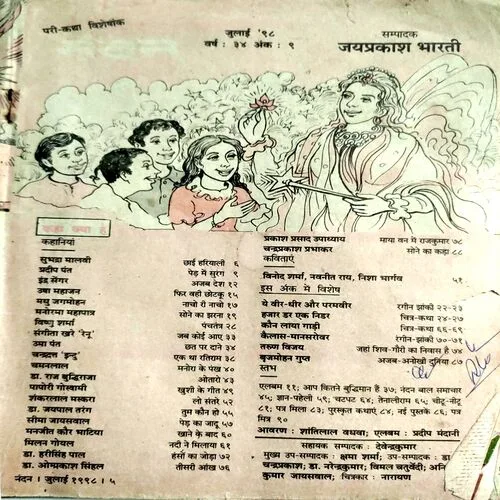 परी-कथा विशेषांक
जुलाई '९८
वर्ष : ३४ अंक : ९
सम्पादक
जयप्रकाश भारती
कहां क्या है
कहानियां
सुभद्रा मालवी छाई हरियाली ६
प्रदीप पंत पेड़ में सुरंग ९
इंद्र सेंगर अजब देश १२
उषा महाजन फिर वही छोटकू १५
मधु जगमोहन नाचो रानी १७
मनोरमा महापात्र सोने का झरना १९
विष्णु शर्मा पंचतंत्र २८
संगीता खरे 'रेनू' जब कोई आए ३३
उमा पंत छत पर दाने ३४
चन्द्रदत्त 'इन्दु' एक था रतिराम ३८
चमनलाल मनोरा के पंख ४०
डा. राज बुद्धिराजा ओतारो ४३
पापोरी गोस्वामी खुशी के गीत ४९
शंकरलाल मस्करा लो संतरे ५२
डा. जयपाल तरंग तुम कौन हो ५५
सीमा जायसवाल पेड़ का जादू ५७
मनजीत कौर भाटिया खाने के बाद ६०
मिलन गोयल नदी ने मिलाया ६१
डा. हरीसिंह पाल हंसों का जोड़ा ७२
डा. ओमप्रकाश सिंहल तीसरी आंख ७६
नंदन । जुलाई १९९८ । ५
प्रकाश प्रसाद उपाध्याय माया वन में राजकुमार ७८
चन्द्रप्रकाश प्रभाकर सोने का कड़ा ८८
कविताएं
विनोद शर्मा, नवनीत राय, निशा भार्गव ५९
इस अंक में विशेष
ये वीर-धीर और परमवीर रंगीन झांकी २२-२३
हजार डर एक निडर चित्र-कथा २४-२७
कौन लाया गाड़ी चित्र-कथा ६६-६९
कैलास-मानसरोवर रंगीन-झांकी ७०-७१
तरुण विजय जहां शिव-गौरी का निवास है ७४
बृजमोहन गुप्त अजब-अनोखी दुनिया ८७
स्तंभ
एलबम ११; आप कितने बुद्धिमान हैं ३७; नंदन बाल समाचार
४५; ज्ञान-पहेली ५९; चटपट ६४; तेनालीराम ६५; चीटू-नीटू
८१; पत्र मिला ८३; पुरस्कृत कथाएं ८४; नई पुस्तकें ८६; पत्र
मित्र ९०
आवरण : शांतिलाल वधवा; एलबम : प्रदीप मंदानी
सहायक सम्पादक : देवेन्द्रकुमार
मुख्य उप-सम्पादक : क्षमा शर्मा; उप-सम्पादक : डा.
चन्द्रप्रकाश; डा. नरेन्द्रकुमार; विमल चतुर्वेदी;
कुमार जायसवाल; चित्रकार : नारायण